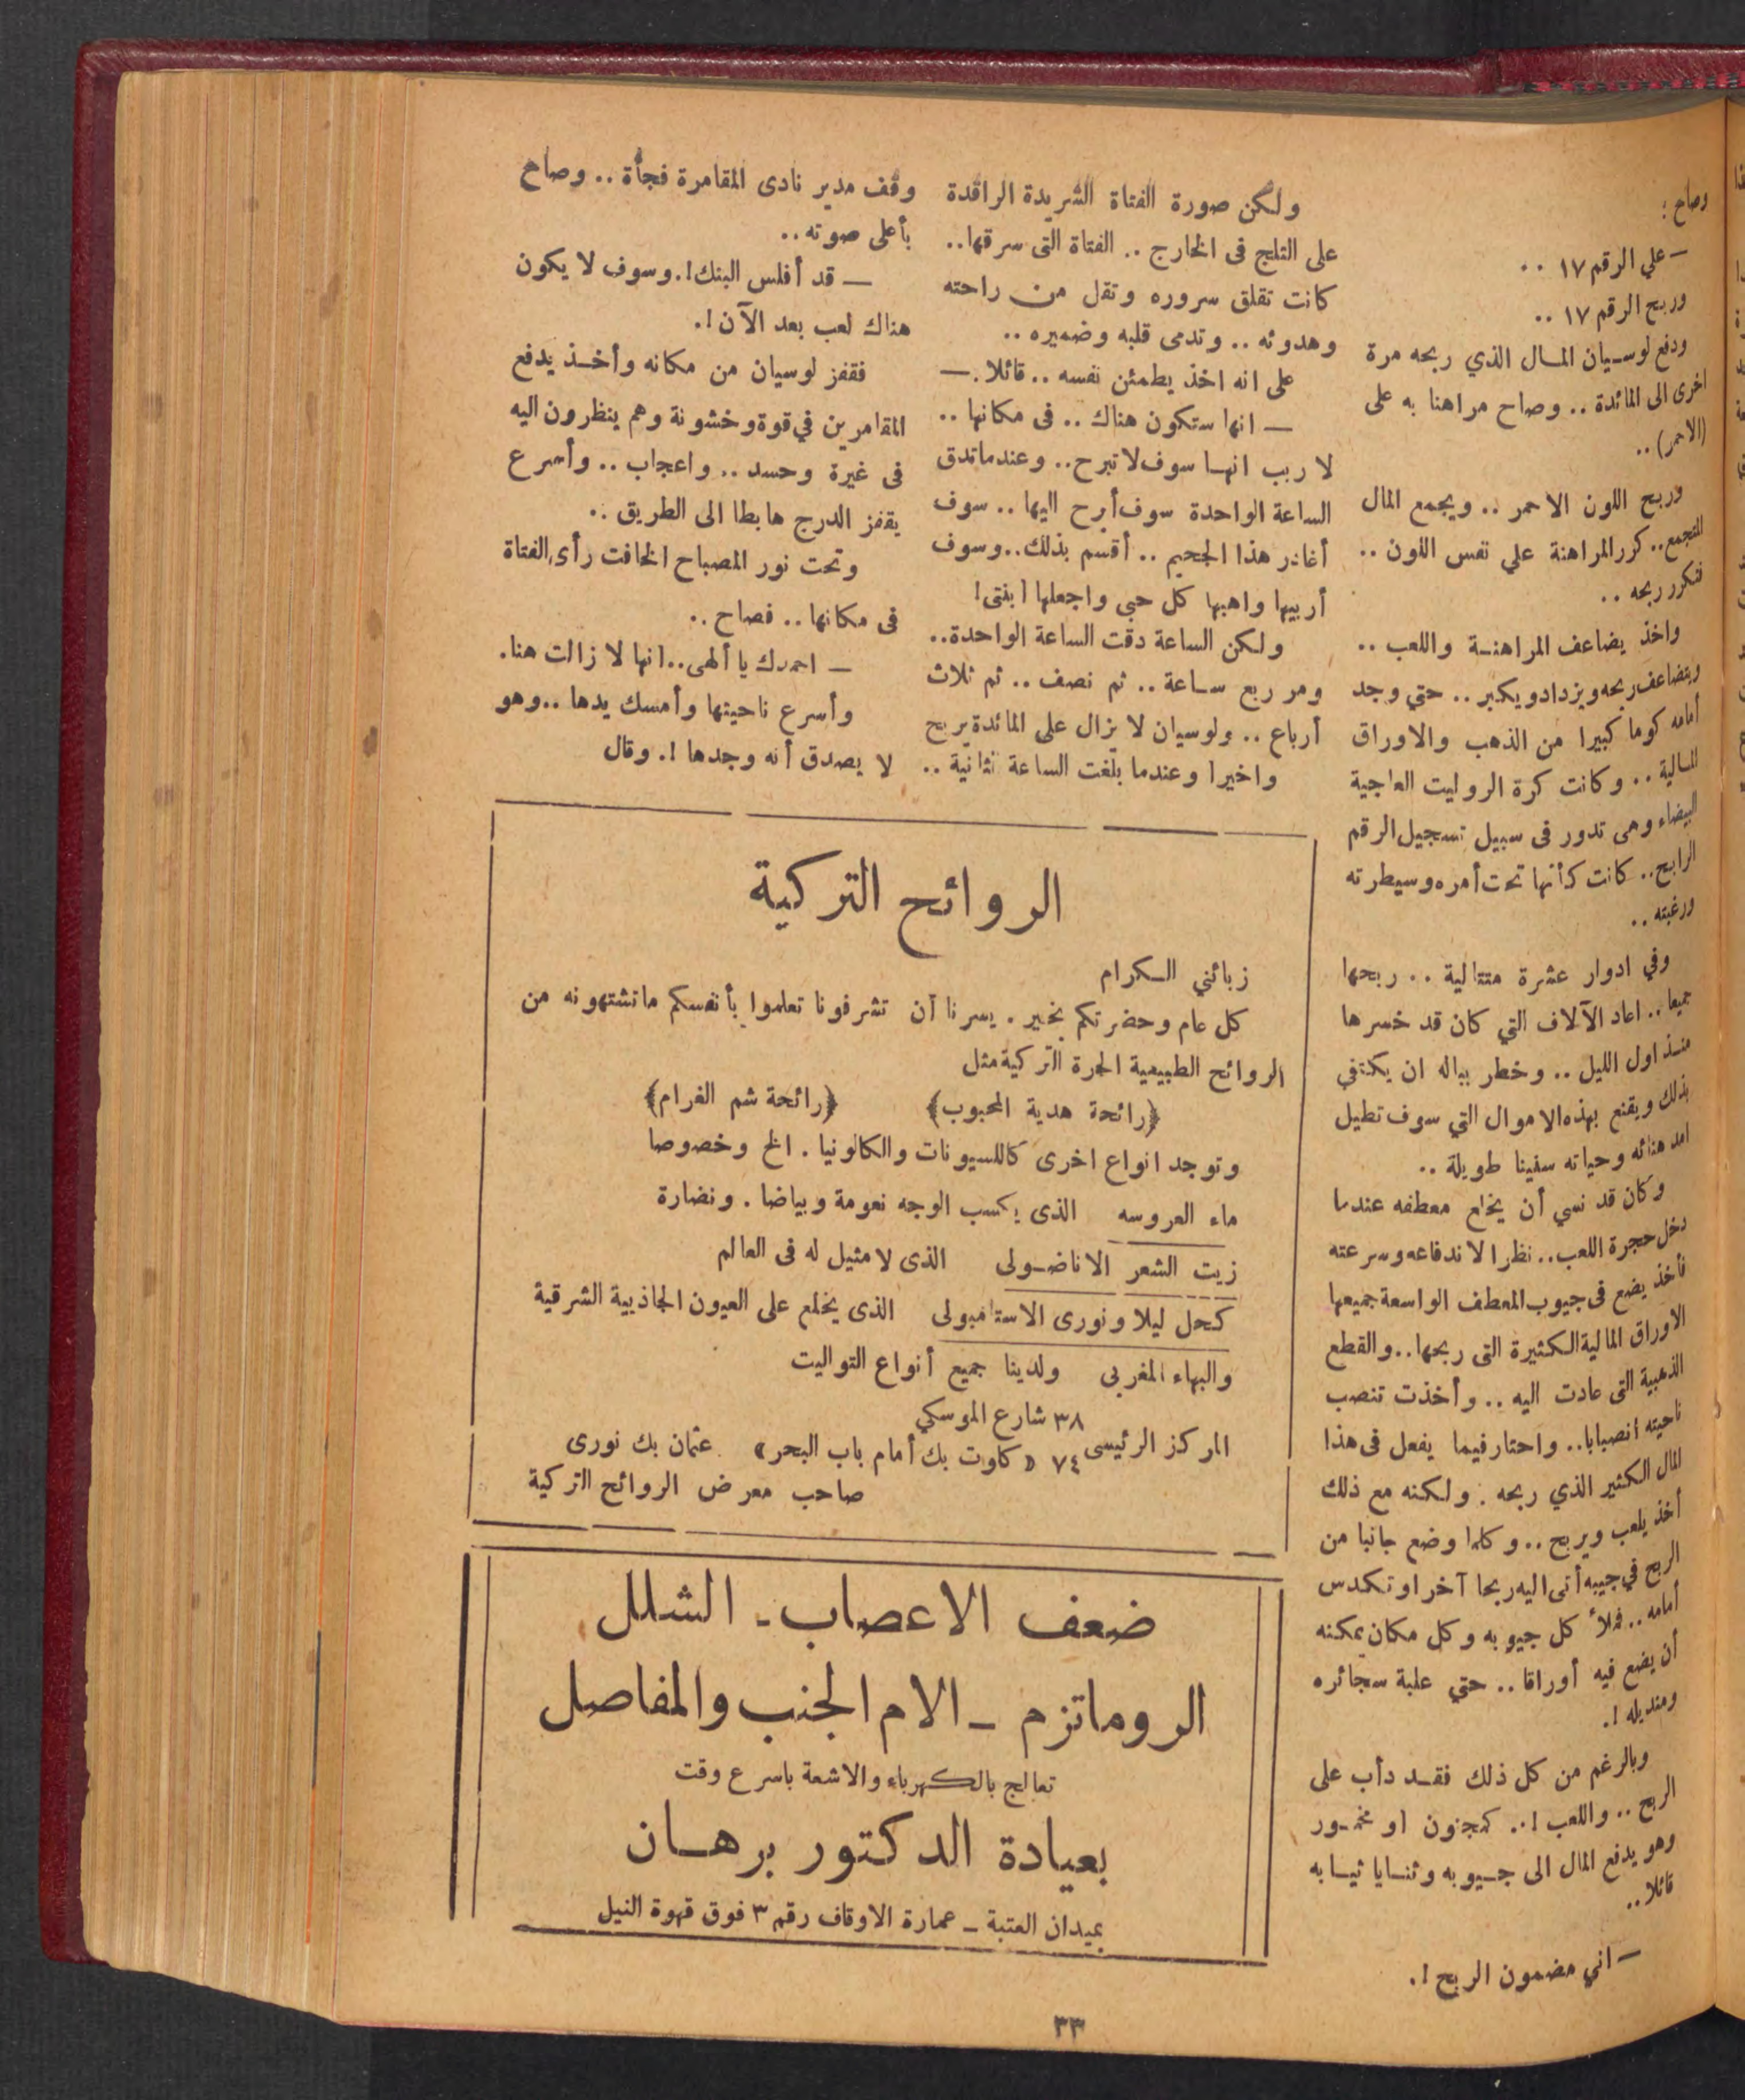 وصاح :
— علي الرقم ١٧ ..
وربح الرقم ١٧ ..
ودفع لوسيان المال الذي ربحه مرة
اخرى الى المائدة .. وصاح مراهنا به على
(الاحمر) ..
وربح اللون الاحمر .. ويجمع المال
المتجمع .. كرر المراهنة علي نفس اللون ..
فتكرر ربحه ..
واخذ يضاعف المراهنة واللعب ..
ويتضاعف ربحه ويزداد ويكبر .. حتي وجد
أمامه كوما كبيرا من الذهب والاوراق
المالية .. وكانت كرة الروليت العاجية
البيضاء وهى تدور فى سبيل تسجيل الرقم
الرابح .. كانت كأنها تحت أمره وسيطرته
ورغبته ..
وفي ادوار عشرة متتالية .. ربحها
جميعا .. اعاد الآلاف التي كان قد خسرها
منذ اول الليل .. وخطر بباله ان يكتفي
بذلك ويقنع بهذه الاموال التي سوف تطيل
امد هنائه وحياته سنينا طويلة ..
وكان قد نسي أن يخلع معطفه عندما
دخل حجرة اللعب .. نظرا لاندفاعه وسرعته
فأخذ يضع فى جيوب المعطف الواسعة جميعها
الاوراق المالية الكثيرة التى ربحها .. والقطع
الذهبية التى عادت اليه .. وأخذت تنصب
ناحيته انصبابا .. واحتار فيما يفعل فى هذا
المال الكثير الذي ربحه . ولكنه مع ذلك
أخذ يلعب ويربح .. وكلما وضع جانبا من
الربح في جيبه أتى اليه ربحا آخر او تكدس
أمامه .. فملأ كل جيوبه وكل مكان يمكنه
أن يضع فيه أوراقا .. حتي علبة سجائره
ومنديله !.
وبالرغم من كل ذلك فقد دأب على
الربح .. واللعب !.. كمجنون او مخمور
وهو يدفع المال الى جيوبه وثنايا ثيابه
قائلا ..
— اني مضمون الربح !.
ولكن صورة الفتاة الشريدة الراقدة
على الثلج فى الخارج .. الفتاة التى سرقها ..
كانت تقلق سروره وتقل من راحته
وهدوئه .. وتدمى قلبه وضميره ..
على انه اخذ يطمئن نفسه .. قائلا . —
— انها ستكون هناك .. فى مكانها ..
لا ريب انها سوف لا تبرح .. وعندما تدق
الساعة الواحدة سوف أبرح اليها .. سوف
أغادر هذا الجحيم .. أقسم بذلك .. وسوف
أربيها واهبها كل حبى واجعلها ابنتى !
ولكن الساعة دقت الساعة الواحدة ..
ومر ربع ساعة .. ثم نصف .. ثم ثلاث
أرباع .. ولوسيان لا يزال على المائدة يربح
واخيرا وعندما بلغت الساعة الثانية ..
وقف مدير نادى المقامرة فجأة .. وصاح
بأعلى صوته ..
— قد أفلس البنك !. وسوف لا يكون
هناك لعب بعد الآن !.
فقفز لوسيان من مكانه وأخذ يدفع
المقامرين في قوة وخشونة وهم ينظرون اليه
فى غيرة وحسد .. واعجاب .. وأسرع
يقفز الدرج هابطا الى الطريق ..
وتحت نور المصباح الخافت رأى الفتاة
فى مكانها .. فصاح ..
— احمدك يا ألهى .. انها لا زالت هنا .
وأسرع ناحيتها وأمسك يدها .. وهو
لا يصدق أنه وجدها !. وقال
الروائح التركية
زبائني الكرام
كل عام وحضرتكم بخير . يسرنا أن تشرفونا تعلموا بأنفسكم ما تشتهونه من
الروائح الطبيعية الحرة التركية مثل
﴿رائحة هدية المحبوب﴾ ﴿رائحة شم الغرام﴾
وتوجد انواع اخرى كاللسيونات والكالونيا . الخ وخصوصا
ماء العروسه الذى يكسب الوجه نعومة وبياضا . ونضارة
زيت الشعر الاناضولى الذى لا مثيل له فى العالم
كحل ليلا ونورى الاستامبولى الذى يخلع على العيون الجاذبية الشرقية
والبهاء المغربى ولدينا جميع أنواع التواليت
٣٨ شارع الموسكي
المركز الرئيسى ٧٤ « كلوت بك أمام باب البحر » عثمان بك نورى
صاحب معرض الروائح التركية
ضعف الاعصاب - الشلل
الروماتزم - الام الجنب والمفاصل
تعالج بالكهرباء والاشعة باسرع وقت
بعيادة الدكتور برهان
بميدان العتبة - عمارة الاوقاف رقم ٣ فوق قهوة النيل
٣٣